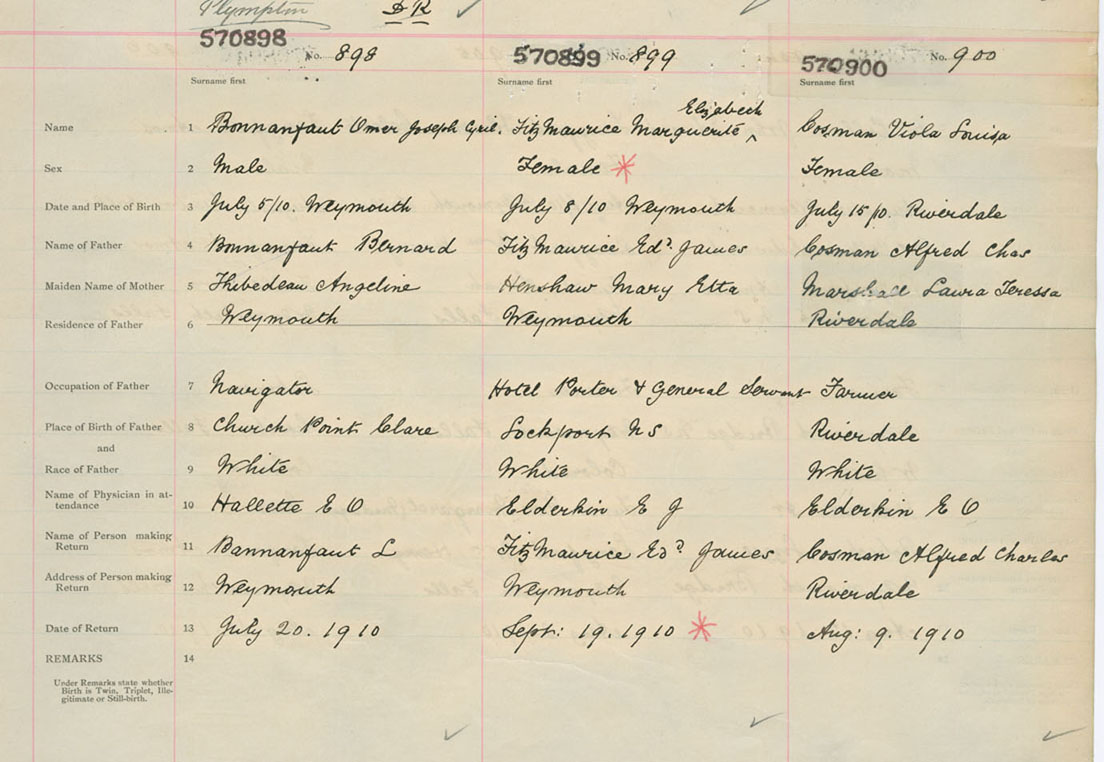 Plympton DR
570898 No. 898 570899 No. 899 570900 No. 900
Surname first Surname first Surname first
Elizabeth
Name 1 Bonnanfaut Omer Joseph Cyril. FitzMaurice Marguerite ^ Cosman Viola Louisa
Sex 2 Male Female * Female
Date and Place of Birth 3 July 5/10. Weymouth July 8/10 Weymouth July 15/10. Riverdale
Name of Father 4 Bonnanfaut Bernard FitzMaurice Edd James Cosman Alfred Chas
Maiden Name of Mother 5 Thibedeau Angeline Henshaw Mary Etta Marshall Laura Teressa
Residence of Father 6 Weymouth Weymouth Riverdale
Occupation of Father 7 Navigator Hotel Porter & General Servant Farmer
Place of Birth of Father 8 Church Point Clare Lockport N S Riverdale
and
Race of Father 9 White White White
Name of Physician in at-
tendance 10 Hallette E O Elderkin E J Elderkin E O
Name of Person making
Return 11 Bannanfaut L FitzMaurice Edd James Cosman Alfred Charles
Address of Person making
Return 12 Weymouth Weymouth Riverdale
Date of Return 13 July 20. 1910 Sept: 19. 1910 * Aug: 9. 1910
REMARKS 14
Under Remarks state whether
Birth is Twin, Triplet, Ille-
gitimate or Still-birth.